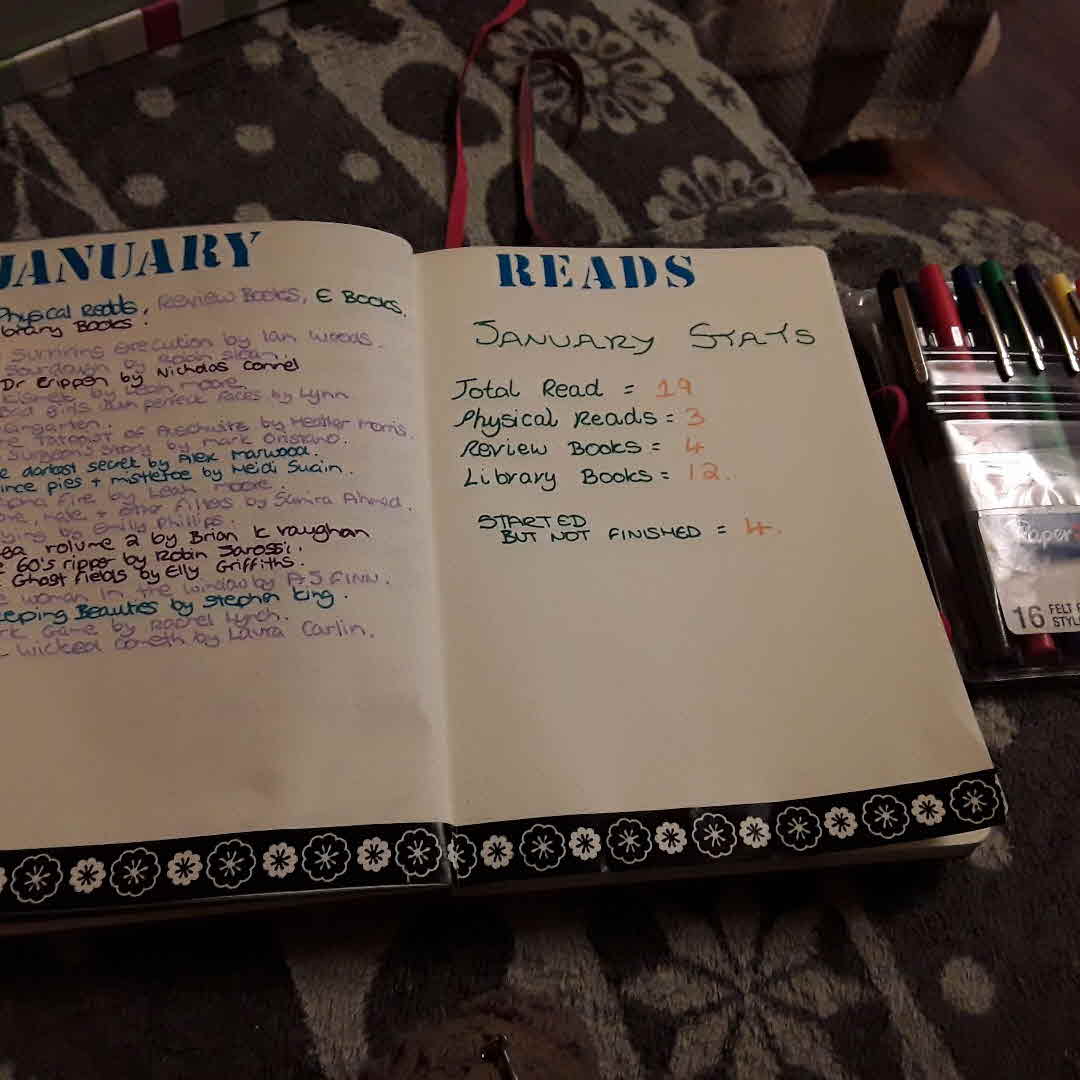 JANUARY
Physical Reads, Review Books, E Books,
Library Books.
surviving execution by Ian Woods.
Sourdough by Robin Sloan.
Dr Crippen by Nicholas Connel
by Leah Moore.
girls with perfect faces by Lynn
Weingarten.
Tatooist of Auschwitz by Heather Morris.
Surgeons Story by Mark Oristano.
darkest secret by Alex Marwood.
pies + mistletoe by Heidi Swain.
Fire by Leah Moore.
Hate + other Filters by Samira Ahmed.
by Emily Phillips.
volume 2 by Brian K Vaughan
60's ripper by Robin Jarossi.
Ghost Fields by Elly Griffiths.
woman in the window by AJ FINN.
Beauties by Stephen King.
Game by Rachel Lynch.
wicked cometh by Laura Carlin.
READS
JANUARY STATS
Total Read = 19
Physical Reads = 3
Review Books = 4
Library Books = 12.
STARTED
BUT NOT FINISHED = 4.
Paper
16 FELT
STYL